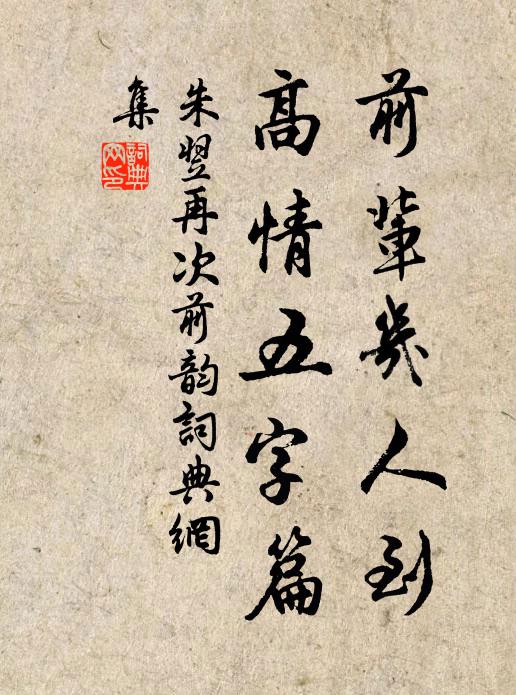 前輩幾人到
高情五字篇
朱翌再次前韵詞典網
集
詞典
网印